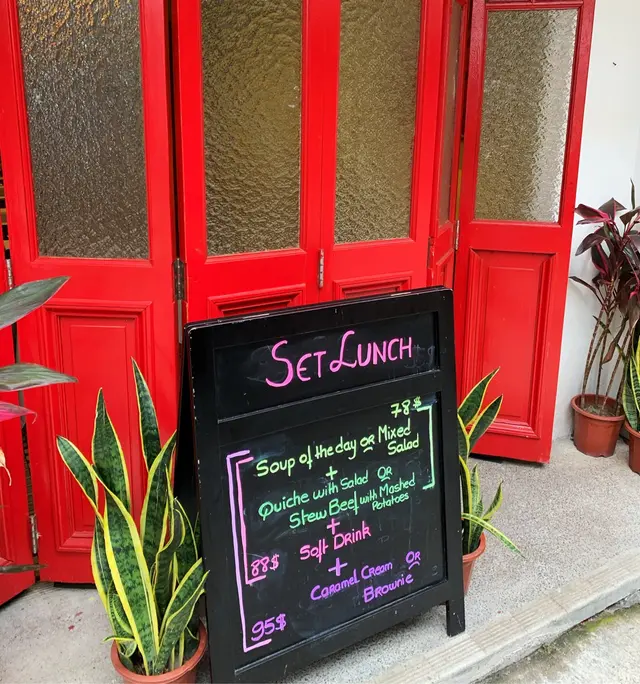 SET LUNCH
78$
Soup of the day OR Mixed
Salad
+
Quiche with Salad OR
Stew Beef with Mashed
Potatoes
+
Soft Drink
88$
+
Caramel Cream OR
Brownie
95$